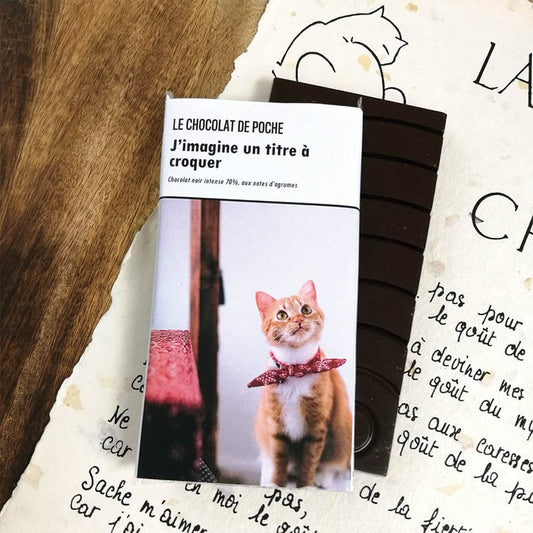 LE CHOCOLAT DE POCHE
J'imagine un titre à
croquer
Chocolat noir intense 70%, aux notes d'agrumes
LA
C
pas pour
le goût de
à deviner mes
le goût du my
as aux caresses
goût de la pu
Ne
car
pas, de la fierté
Sache en moi le goû
m'aimer
Car j'ai